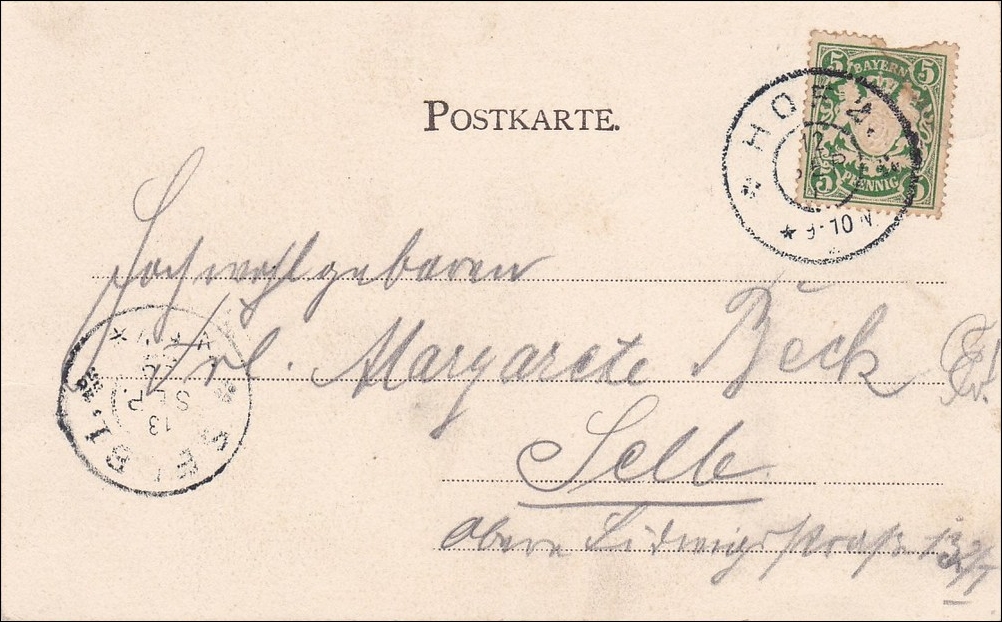 POSTKARTE.
5 BAYERN 5
5 PFENNIG 5
HOF
Hochwohlgeboren
Frl. Margarete Beck
Selb
obere Ludwigsstraße
SELB I.
13
SEP.